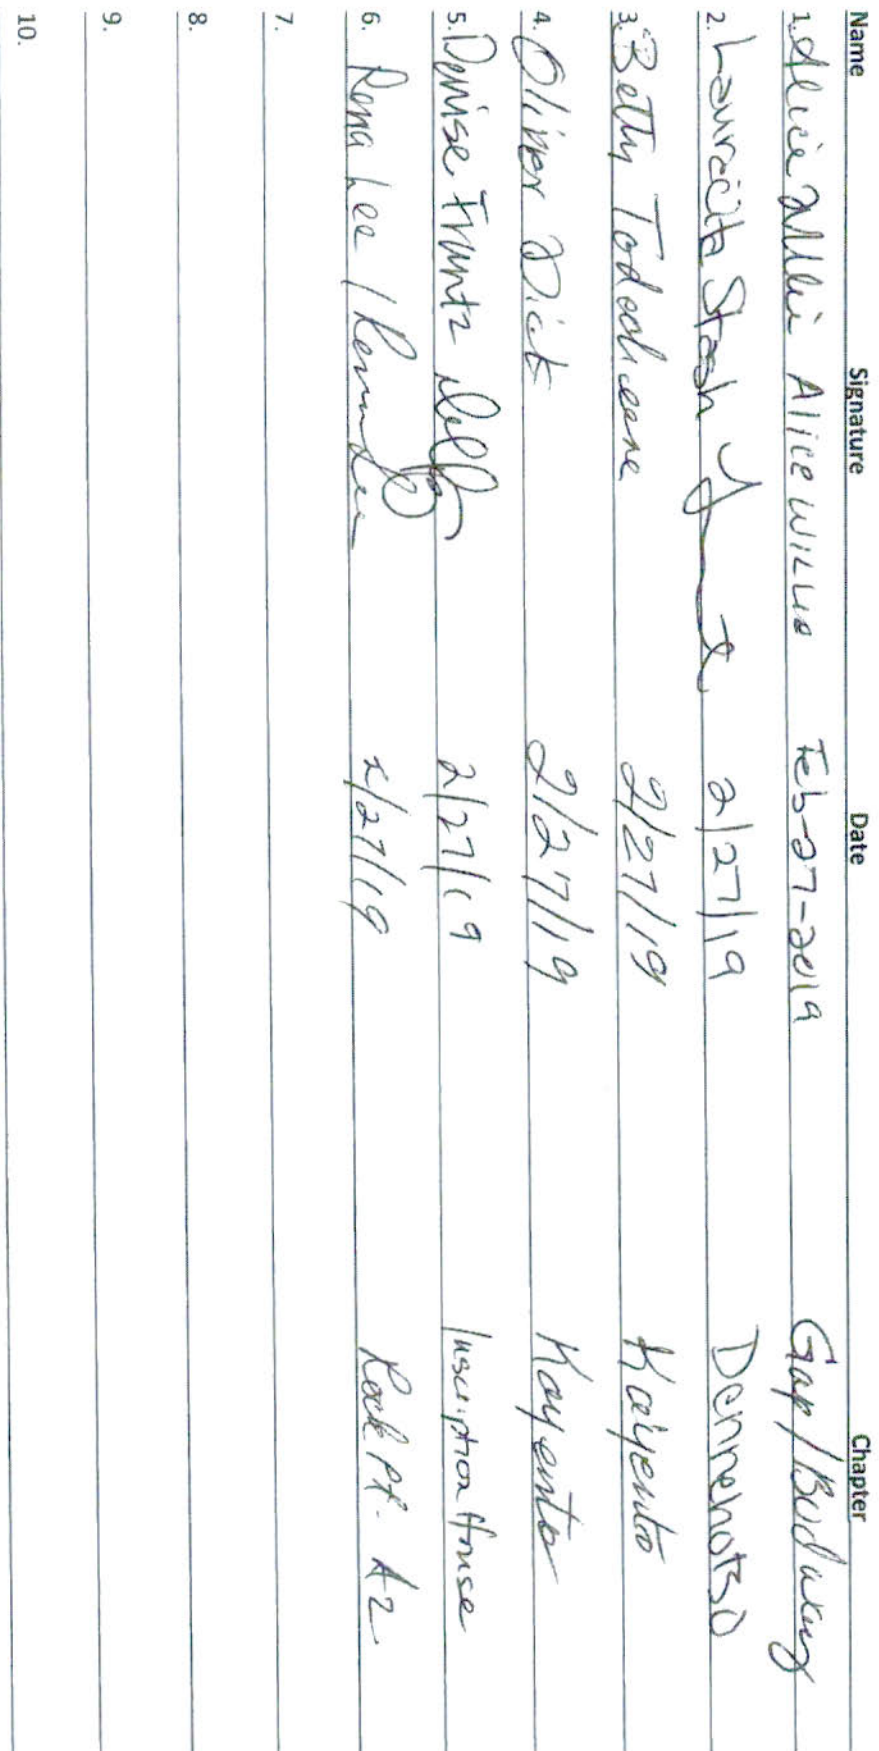 Name Signature Date Chapter
1. Alice Willie Alice Willie Feb-27-2019 Gap/Bodaway
2. Lauracita Stash 2/27/19 Dennehotso
3. Betty Todecheene 2/27/19 Kayenta
4. Oliver Dick 2/27/19 Kayenta
5. Denise 2/27/19 Inscription House
6. Rena Lee / Rena Lee 2/27/19 Rock Pt. AZ
7.
8.
9.
10.